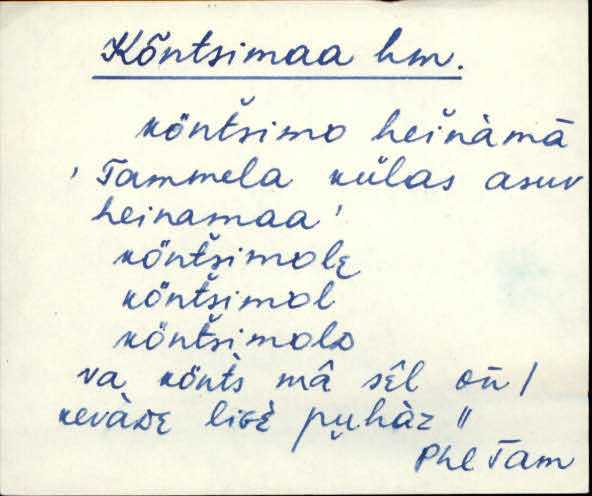 Kõntsimaa hm.
köntšimo heinàmā
'Tammela külas asuv
heinamaa'
köntšimolę
köntšimol
köntšimolᴅ
va könts mâ sêl on̄ /
kevàᴅᴇ liɢè pu̬hàz "
Phl Tam